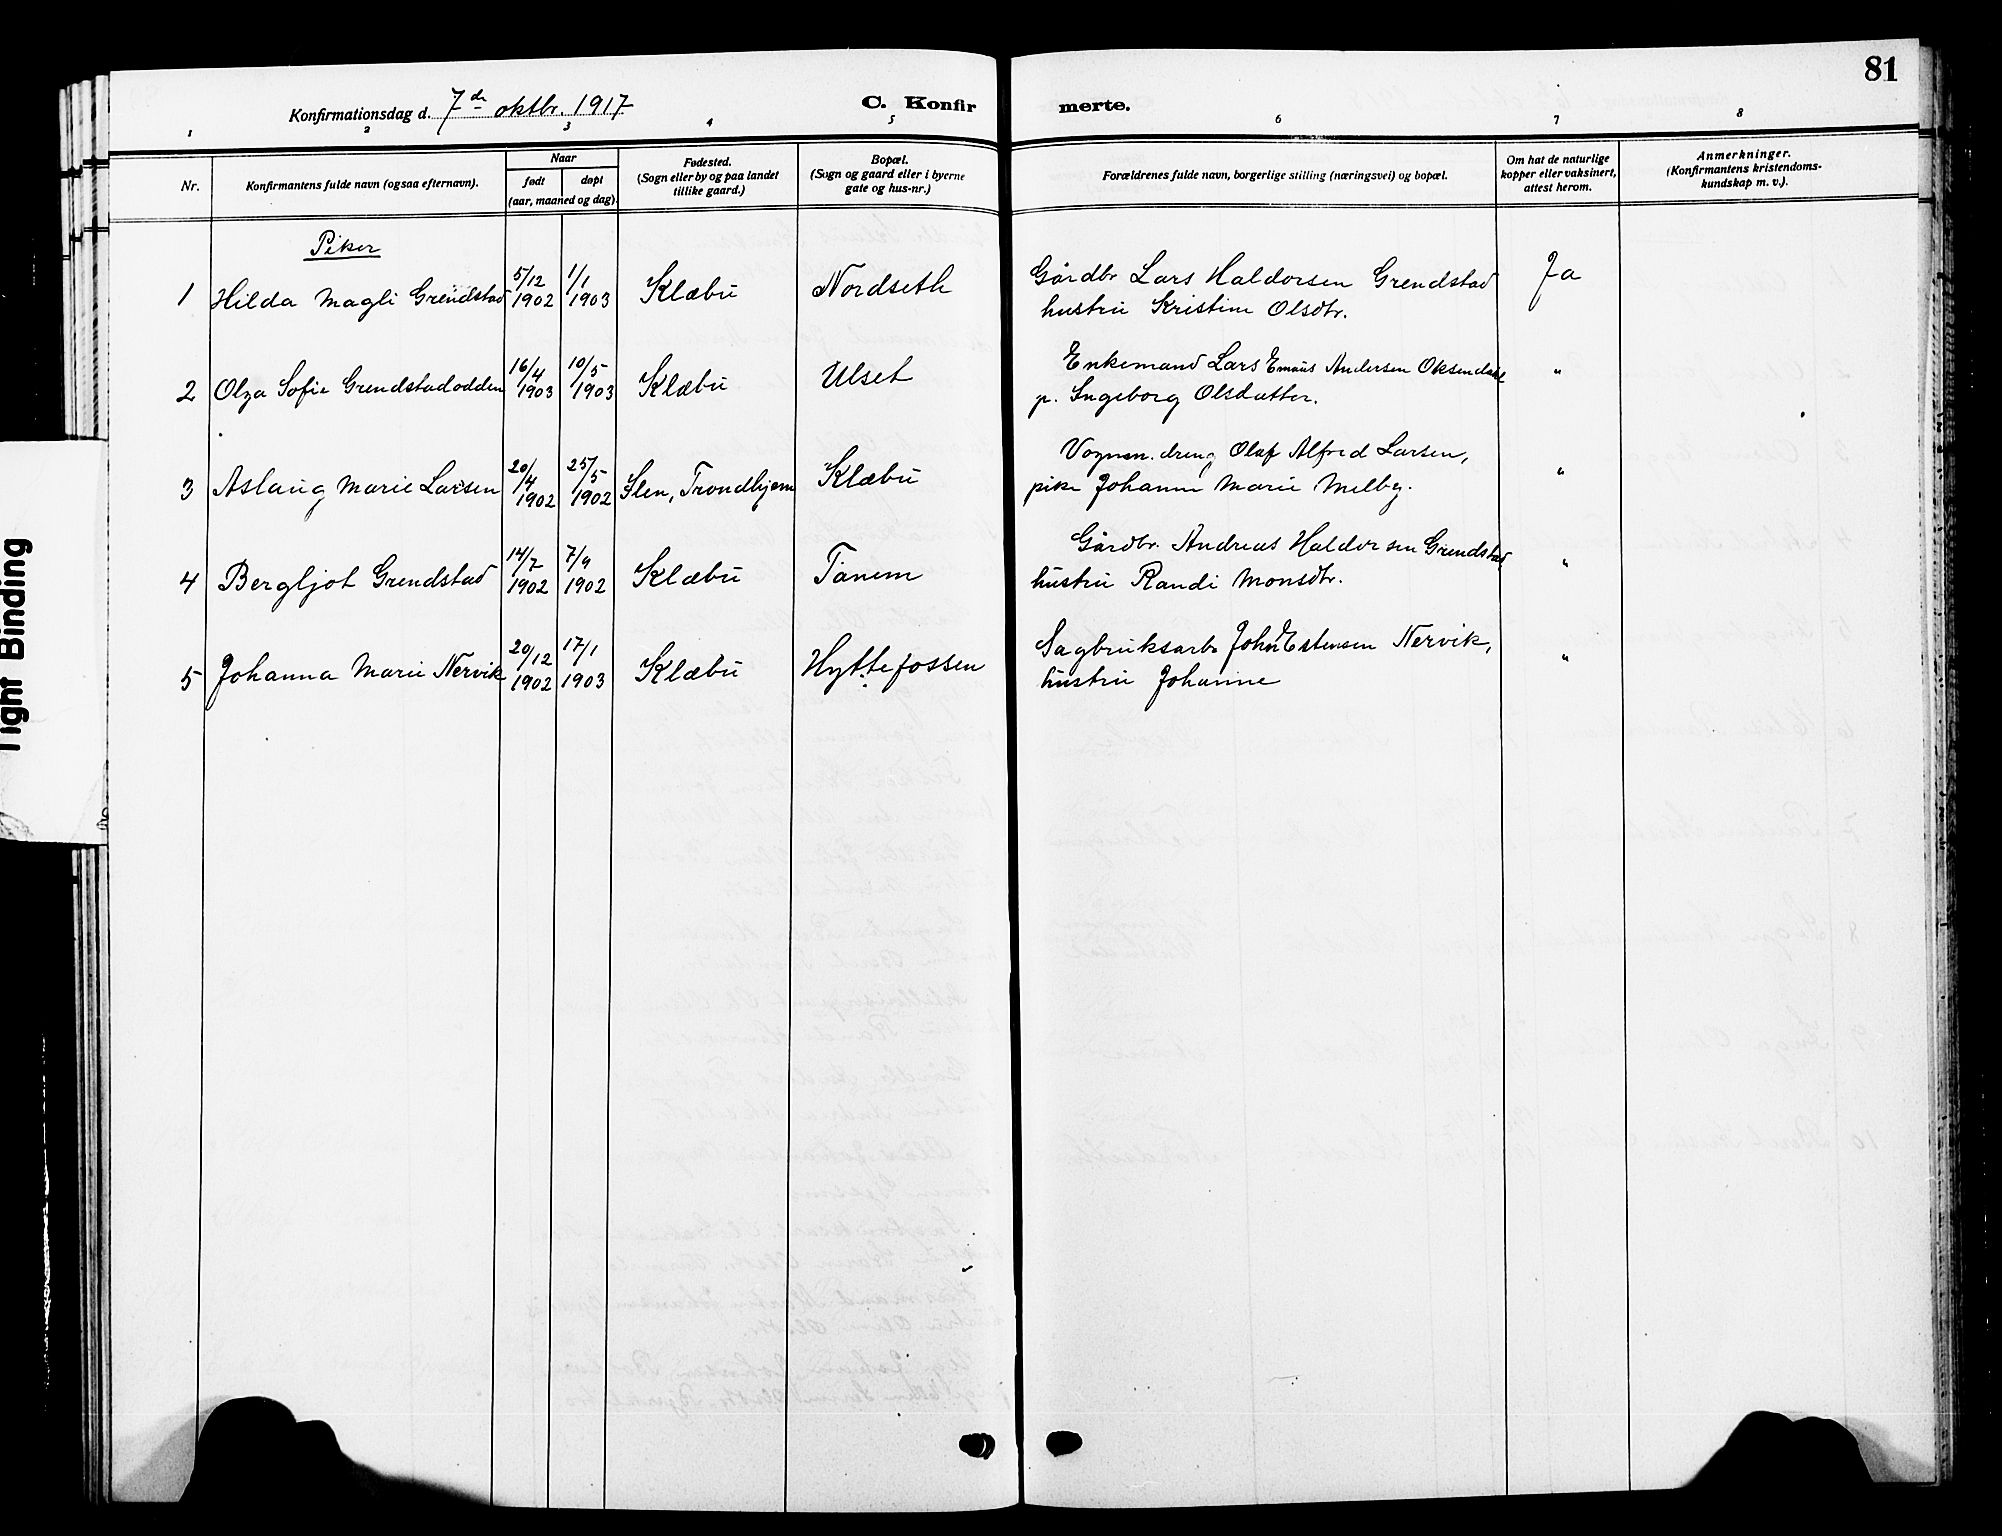 81
Konfirmationsdag d. 7de oktbr. 1917
C. Konfir merte.
1 2 3 4 5 6 7 8
Nr.
Konfirmantens fulde navn (ogsaa efternavn).
Naar
født døpt
(aar, maaned og dag).
Fødested.
(Sogn eller by og paa landet
tillike gaard.)
Bopæl.
(Sogn og gaard eller i byerne
gate og hus-nr.)
Forældrenes fulde navn, borgerlige stilling (næringsvei) og bopæl.
Om hat de naturlige
kopper eller vaksinert,
attest herom.
Anmerkninger.
(Konfirmantens kristendoms-
kundskap m. v.).
Piker
1 Hilda Magli Grendstad 5/12 1902 1/1 1903 Klæbu Nordseth Gårdbr Lars Haldorsen Grendstad Ja
hustru Kristine Olsdtr.
2 Olga Sofie Grendstadodden 16/4 1903 10/5 1903 Klæbu Ulset Enkemand Lars Emaus Andersen Oksendahl "
p. Ingeborg Olsdatter.
3 Aslaug Marie Larsen 20/4 1902 25/5 1902 Ilen, Trondhjem Klæbu Vognm. dreng Olaf Alfred Larsen, "
pike Johanne Marie Melby.
4 Bergljot Grendstad 14/7 1902 7/9 1902 Klæbu Tanem Gårdbr. Andreas Haldorsen Grendstad "
hustru Randi Monsdtr.
5 Johanna Marie Nervik 20/12 1902 17/1 1903 Klæbu Hyttefossen Sagbruksarb John Estensen Nervik, "
hustru Johanne
Tight Binding